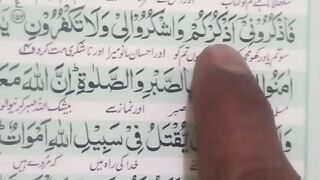 فَاذْكُرُوْنِيْٓ اَذْكُرْكُمْ وَاشْكُرُوْا لِيْ وَلَا تَكْفُرُوْنِ
اور احسان مانو میرا اور ناشکری مت کرو
اٰمَنُوا الصَّبْرِ وَالصَّلٰوةِ اِنَّ اللّٰهَ
صبر اور نماز سے بیشک اللہ
يُّقْتَلُ فِيْ سَبِيْلِ اللّٰهِ اَمْوَاتٌ
خدا کی راہ میں کہ مُردے ہیں